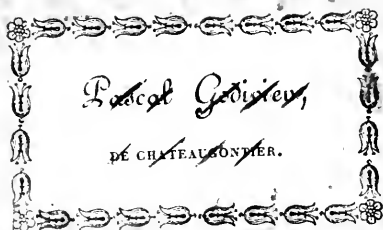 Pascal Gedivier,
DE CHATEAUGONTIER.